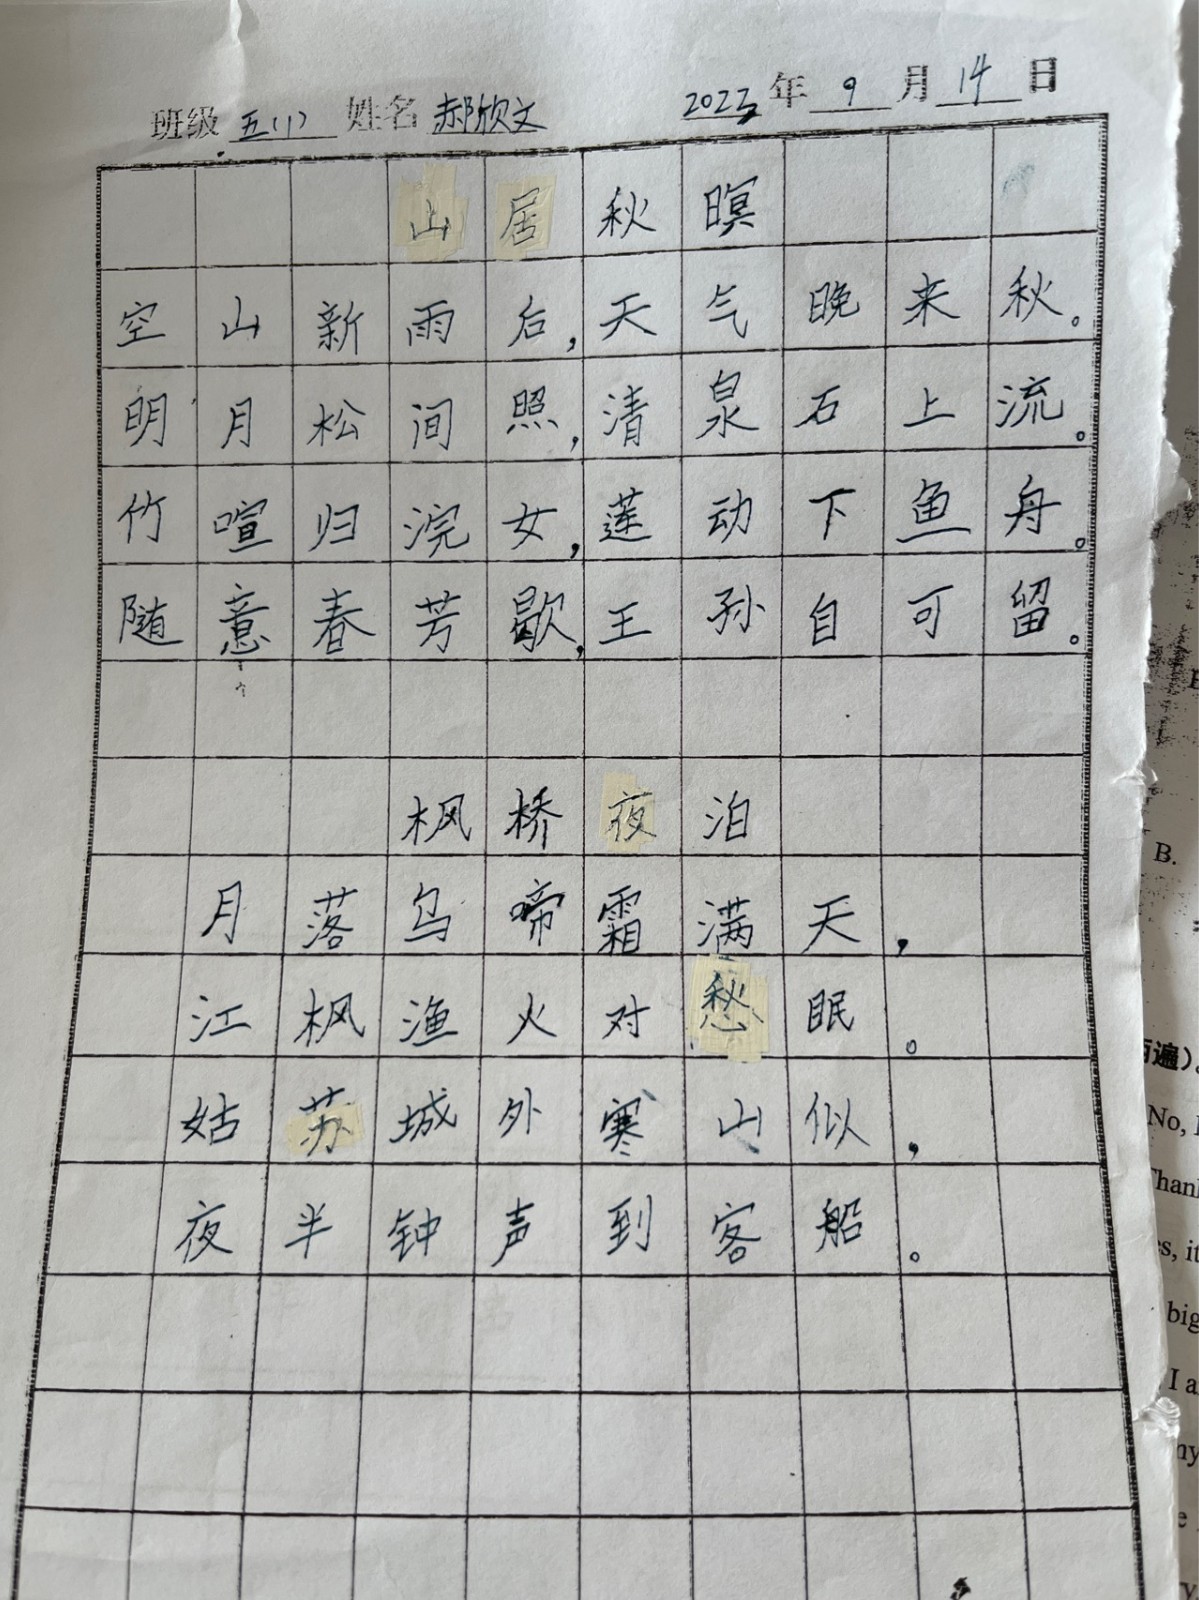 班级 五(1) 姓名 郝欣文 2022年 9 月 14 日
山居秋暝
空山新雨后,天气晚来秋。
明月松间照,清泉石上流。
竹喧归浣女,莲动下鱼舟。
随意春芳歇,王孙自可留。
枫桥夜泊
月落乌啼霜满天,
江枫渔火对愁眠。
姑苏城外寒山似,
夜半钟声到客船。
B.
遍)。
No,
big
I a